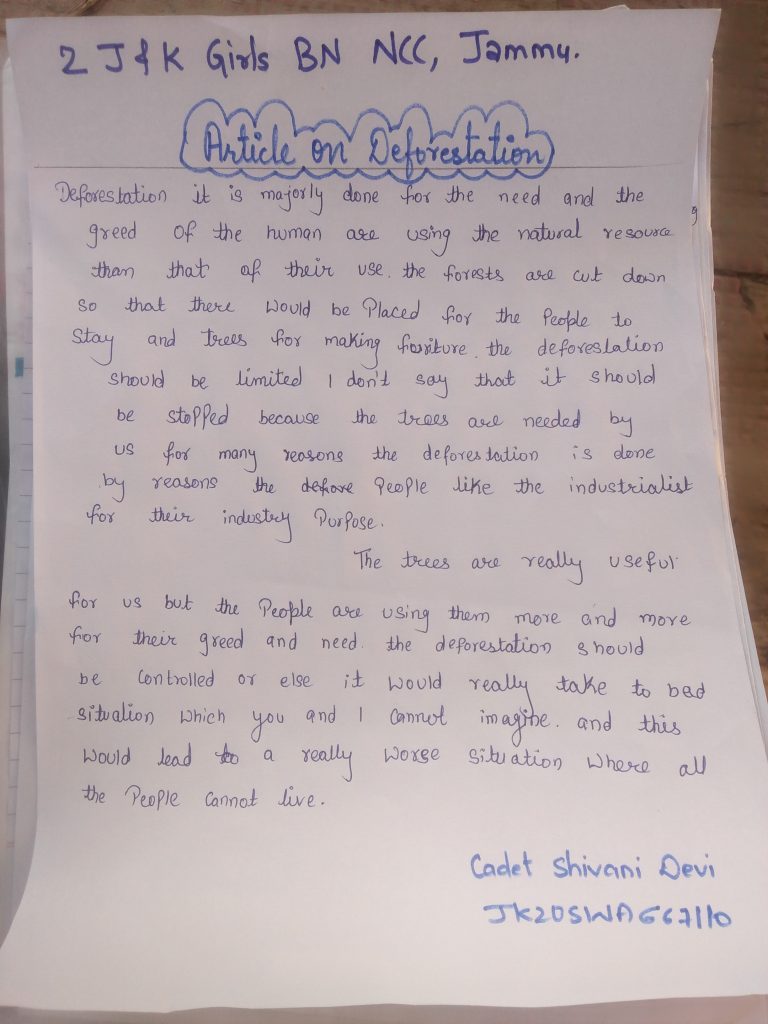 2 J & K Girls BN NCC, Jammu.
Article on Deforestation
Deforestation it is majorly done for the need and the
greed of the human are using the natural resource
than that of their use. the forests are cut down
so that there would be Placed for the People to
Stay and trees for making furniture. the deforestation
should be limited I don't say that it should
be stopped because the trees are needed by
us for many reasons the deforestation is done
by reasons the People like the industrialist
for their industry Purpose.
The trees are really useful
for us but the People are using them more and more
for their greed and need. the deforestation should
be Controlled or else it would really take to bad
situation which you and I cannot imagine. and this
would lead to a really worse situation where all
the People cannot live.
Cadet Shivani Devi
JK20SWA667110